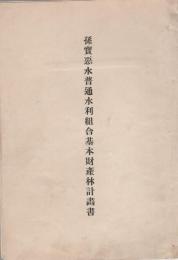 孫寶悲永普通水利組合基本財產林計畵書